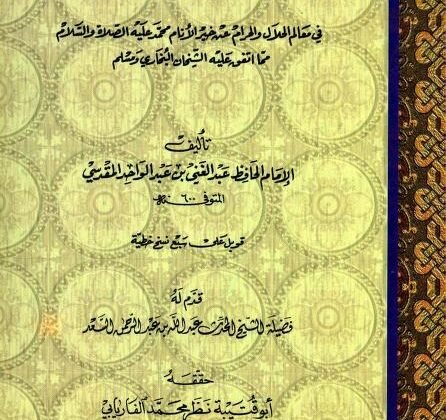 في معالم الحلال والحرام عن خير الأنام محمد عليه الصلاة والسلام
مما اتفق عليه الشيخان البخاري ومسلم
تأليف
الإمام الحافظ عبد الغني بن عبد الواحد المقدسي
المتوفى ٦٠٠ هـ
قوبل على سبع نسخ خطية
قدم له
فضيلة الشيخ المحدث عبد الله بن عبد الرحمن السعد
حققه
أبو قتيبة نظر محمد الفاريابي